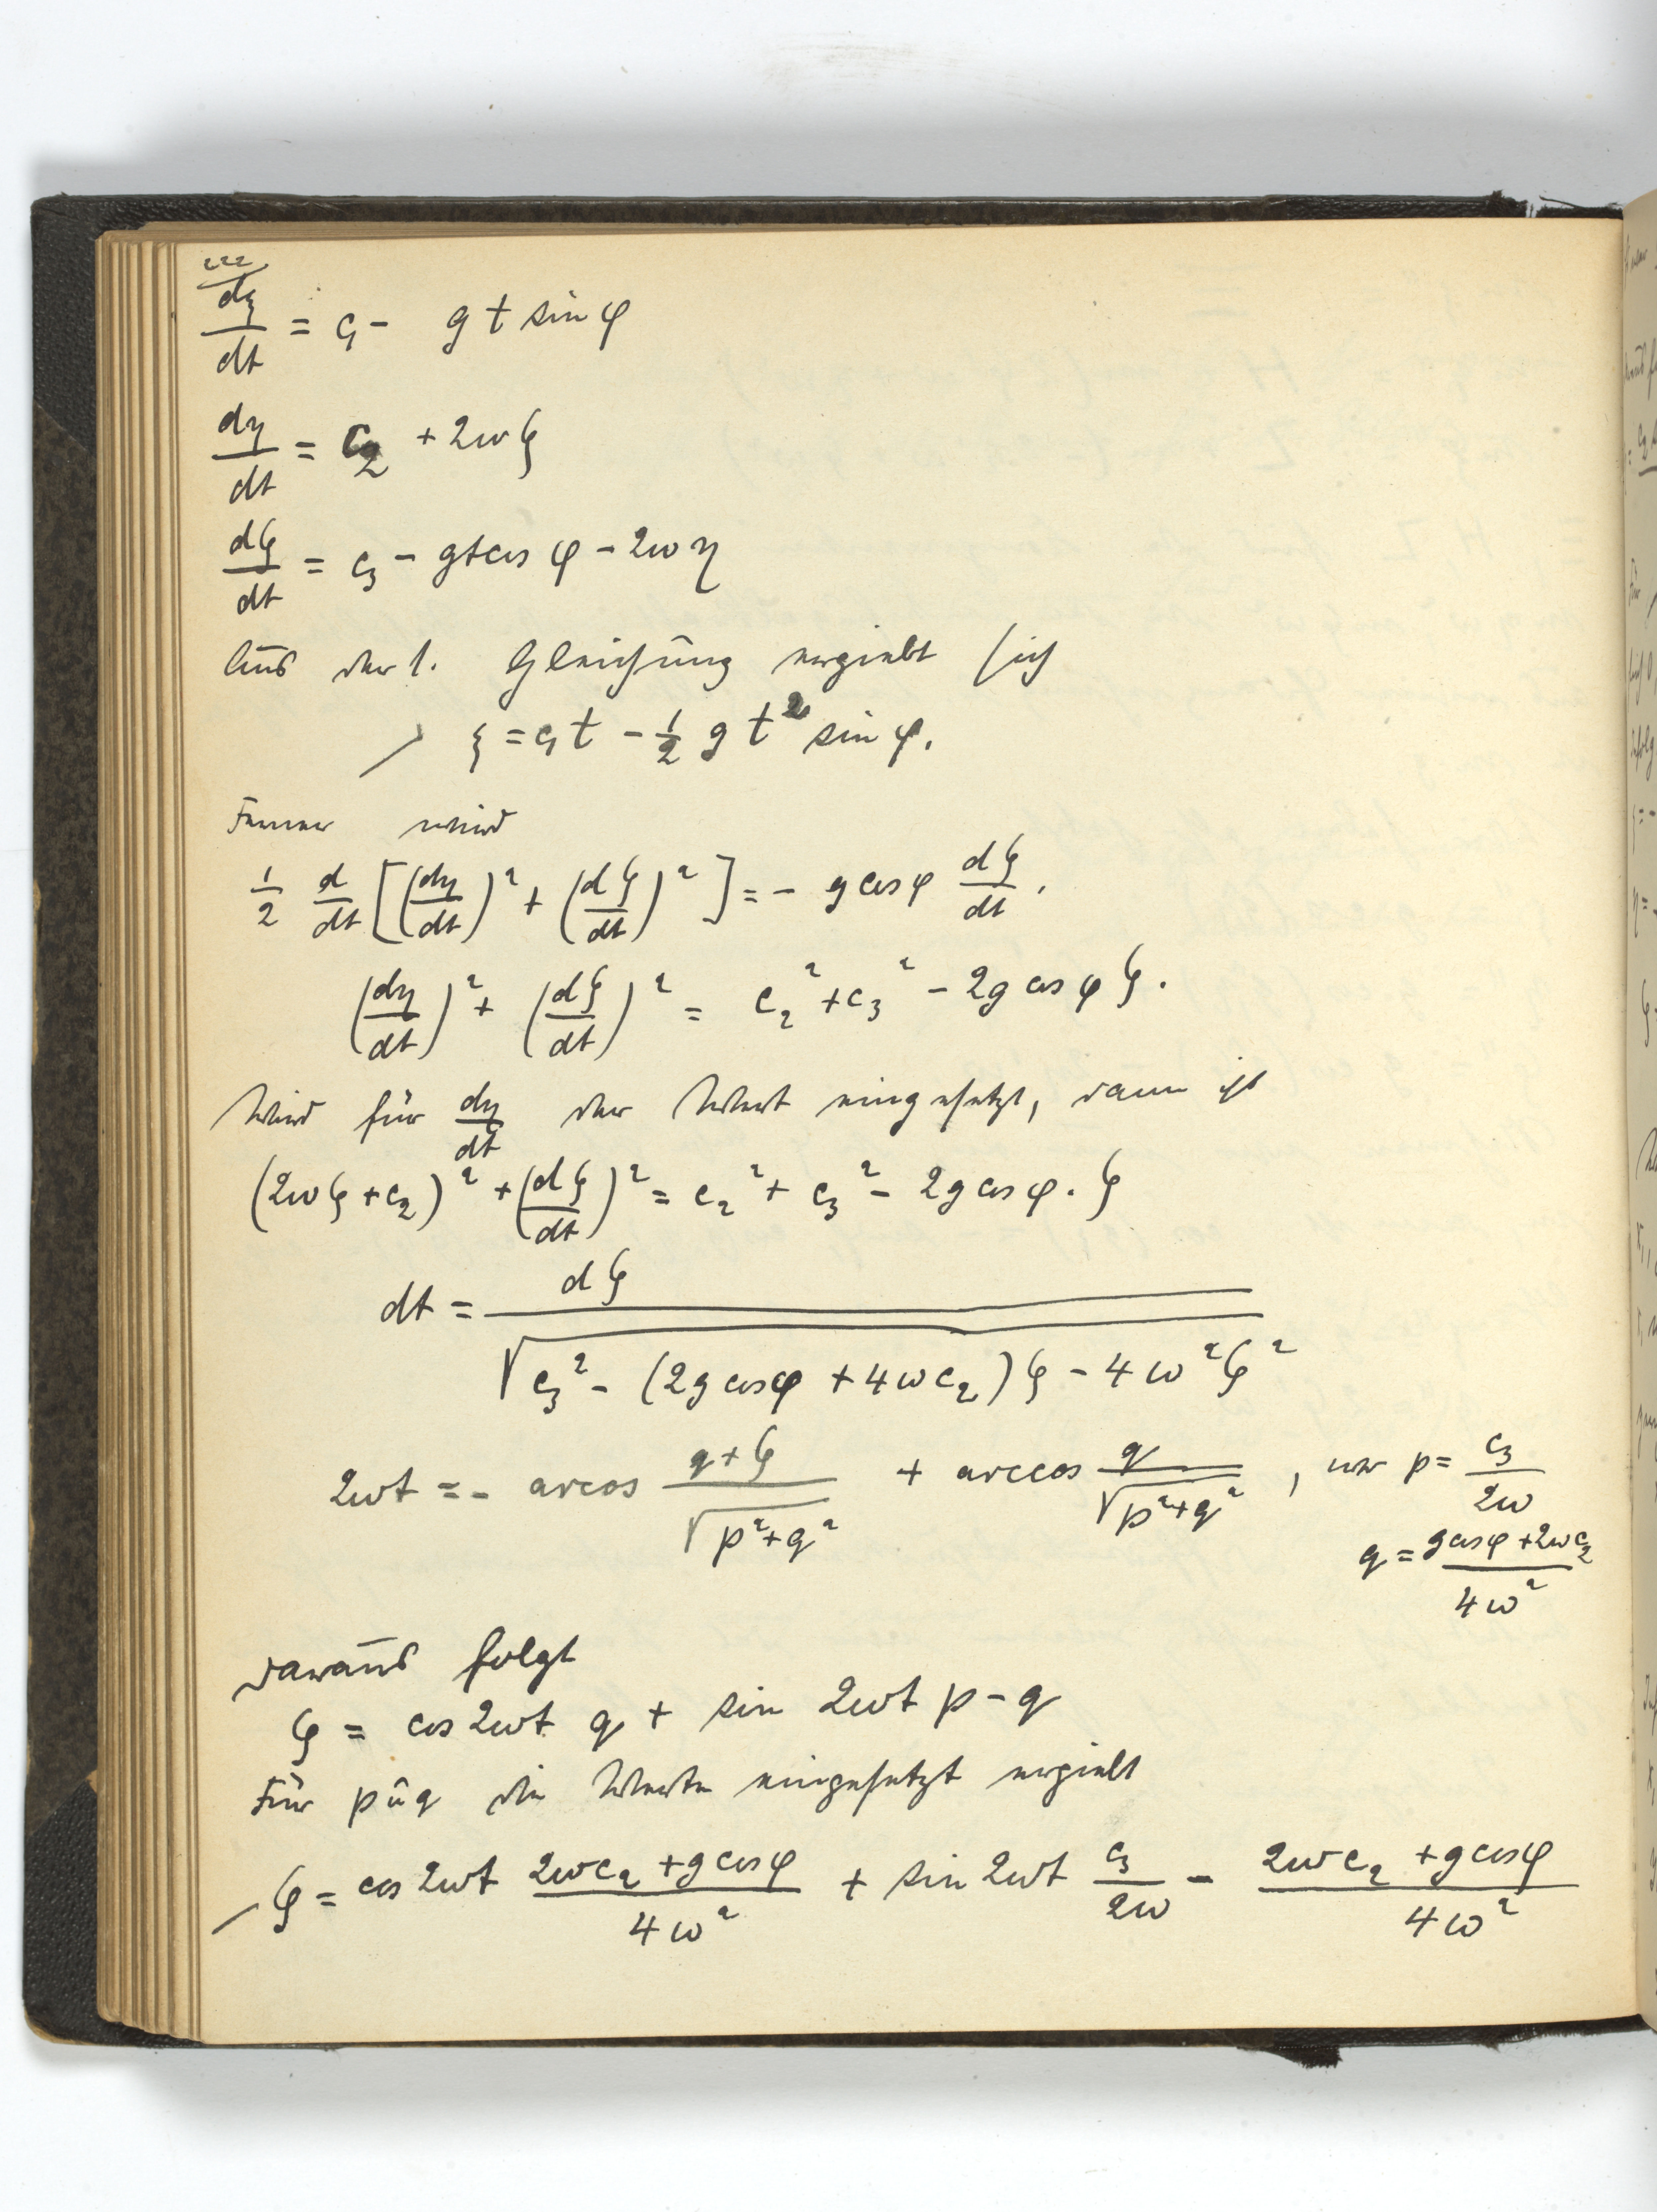 222
dξ/dt = c₁ - g t sin φ
dη/dt = c₂ + 2ωζ
dζ/dt = c₃ - gt cos φ - 2ωη
Aus der 1. Gleichung ergiebt sich
ξ = c₁t - 1/2 g t² sin φ.
Ferner wird
1/2 d/dt [(dη/dt)² + (dζ/dt)²] = - g cos φ dζ/dt.
(dη/dt)² + (dζ/dt)² = c₂² + c₃² - 2g cos φ ζ.
Wird für dη/dt der Wert eingesetzt, dann ist
(2ωζ + c₂)² + (dζ/dt)² = c₂² + c₃² - 2g cos φ . ζ
dt = dζ/√(c₃² - (2g cos φ + 4ωc₂)ζ - 4ω²ζ²)
2ωt = - arcos (q+ζ)/√(p²+q²) + arccos q/√(p²+q²), wo p = c₃/2ω
q = (g cos φ + 2ωc₂)/4ω²
daraus folgt
ζ = cos 2ωt q + sin 2ωt p - q
Für p u q die Werte eingesetzt ergiebt
ζ = cos 2ωt (2ωc₂ + g cos φ)/4ω² + sin 2ωt c₃/2ω - (2ωc₂ + g cos φ)/4ω²